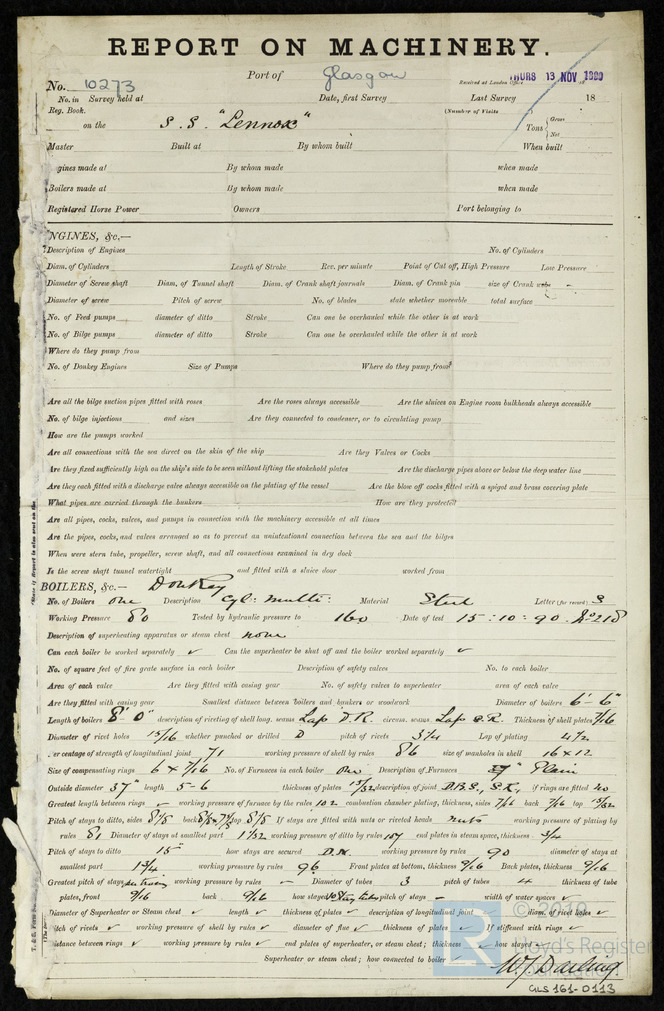 REPORT ON MACHINERY.
No. 10273 Port of Glasgow Received at London Office THURS 13 NOV 1890 18
No. in Survey held at Date, first Survey Last Survey 18
Reg. Book. (Number of Visits
on the S.S. "Lennox" Tons { Gross Net
Master Built at By whom built When built
gines made at By whom made when made
Boilers made at By whom made when made
Registered Horse Power Owners Port belonging to
NGINES, &c.—
Description of Engines No. of Cylinders
Diam. of Cylinders Length of Stroke Rev. per minute Point of Cut off, High Pressure Low Pressure
Diameter of Screw shaft Diam. of Tunnel shaft Diam. of Crank shaft journals Diam. of Crank pin size of Crank webs
Diameter of screw Pitch of screw No. of blades state whether moveable total surface
No. of Feed pumps diameter of ditto Stroke Can one be overhauled while the other is at work
No. of Bilge pumps diameter of ditto Stroke Can one be overhauled while the other is at work
Where do they pump from
No. of Donkey Engines Size of Pumps Where do they pump from
Are all the bilge suction pipes fitted with roses Are the roses always accessible Are the sluices on Engine room bulkheads always accessible
No. of bilge injections and sizes Are they connected to condenser, or to circulating pump
How are the pumps worked
Are all connections with the sea direct on the skin of the ship Are they Valves or Cocks
Are they fixed sufficiently high on the ship's side to be seen without lifting the stokehold plates Are the discharge pipes above or below the deep water line
Are they each fitted with a discharge valve always accessible on the plating of the vessel Are the blow off cocks fitted with a spigot and brass covering plate
What pipes are carried through the bunkers How are they protected
Are all pipes, cocks, valves, and pumps in connection with the machinery accessible at all times
Are the pipes, cocks, and valves arranged so as to prevent an unintentional connection between the sea and the bilges
When were stern tube, propeller, screw shaft, and all connections examined in dry dock
Is the screw shaft tunnel watertight and fitted with a sluice door worked from
BOILERS, &c.— Donkey
No. of Boilers one Description Cyl: Multi: Material Steel Letter (for record) S
Working Pressure 80 Tested by hydraulic pressure to 160 Date of test 15:10:90. No 218
Description of superheating apparatus or steam chest none
Can each boiler be worked separately ✓ Can the superheater be shut off and the boiler worked separately ✓
No. of square feet of fire grate surface in each boiler Description of safety valves No. to each boiler
Area of each valve Are they fitted with easing gear No. of safety valves to superheater area of each valve
Are they fitted with easing gear Smallest distance between boilers and bunkers or woodwork Diameter of boilers 6'-6"
Length of boilers 8'-0" description of riveting of shell long. seams Lap D.R. circum. seams Lap S.R. Thickness of shell plates 7/16
Diameter of rivet holes 13/16 whether punched or drilled D pitch of rivets 3 1/4 Lap of plating 4 1/2
er centage of strength of longitudinal joint 71 working pressure of shell by rules 86 size of manholes in shell 16 x 12
Size of compensating rings 6 x 7/16 No. of Furnaces in each boiler one Description of Furnaces Plain
Outside diameter 37" length 5-6 thickness of plates 15/32 description of joint D.B.S., S.R., if rings are fitted no
Greatest length between rings ✓ working pressure of furnace by the rules 102 combustion chamber plating, thickness, sides 7/16 back 7/16 top 15/32
Pitch of stays to ditto, sides 8 1/8 back top 8 1/8 If stays are fitted with nuts or riveted heads nuts working pressure of plating by
rules 81 Diameter of stays at smallest part 1 7/32 working pressure of ditto by rules 107 end plates in steam space, thickness 3/4
Pitch of stays to ditto 15" how stays are secured D.N. working pressure by rules 90 diameter of stays at
smallest part 1 3/4 working pressure by rules 96 Front plates at bottom, thickness 9/16 Back plates, thickness 9/16
Greatest pitch of stays working pressure by rules ✓ Diameter of tubes 3 pitch of tubes 4 thickness of tube
plates, front 9/16 back 9/16 how stayed Stay tubes pitch of stays — width of water spaces ✓
Diameter of Superheater or Steam chest ✓ length ✓ thickness of plates ✓ description of longitudinal joint diam. of rivet holes ✓
itch of rivets ✓ working pressure of shell by rules ✓ diameter of flue ✓ thickness of plates ✓ If stiffened with rings ✓
istance between rings ✓ working pressure by rules ✓ end plates of superheater, or steam chest; thickness ✓ how stayed
Superheater or steam chest; how connected to boiler ✓
W.J. Darling.
GLS161-0113
© 2019
Lloyd's Register